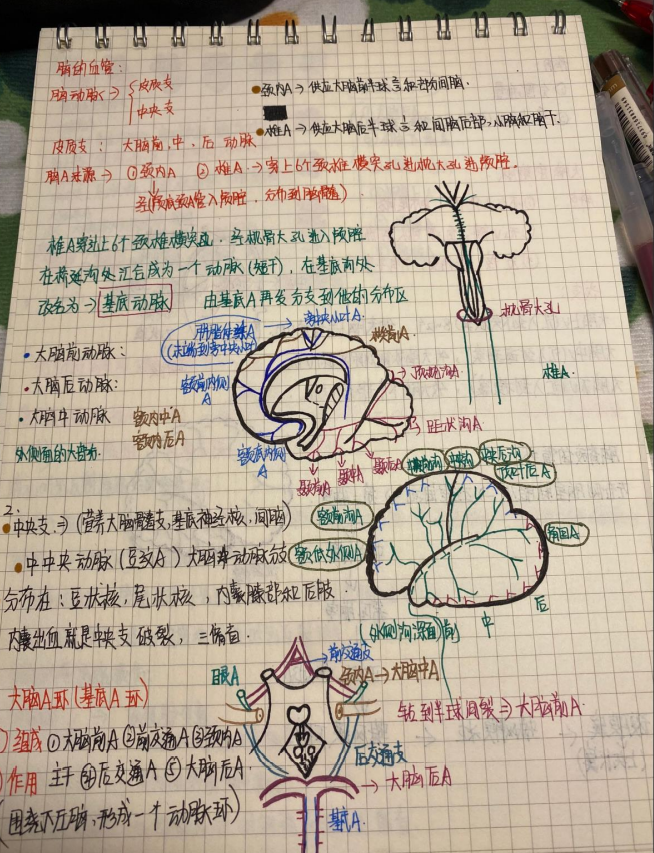 脑的血管:
脑动脉→ { 皮质支
中央支
颈内A→供应大脑前半球 和部分间脑.
椎A→供应大脑后半球 和间脑后部,小脑和脑干.
皮质支: 大脑前,中,后 动脉
脑A来源→ ①颈内A ②椎A→穿上6个颈椎横突孔进枕大孔进颅腔.
椎A穿过上6个颈椎横突孔,经枕骨大孔进入颅腔
在 延沟处汇合成为一个动脉(短干),在基底沟处
改名为→ 基底动脉 由基底A再发分支到他的分布区
枕骨大孔
椎A.
→ 旁中央小叶A.
• 大脑前动脉:
→顶枕沟A
• 大脑后动脉:
额前内侧
A
• 大脑中动脉
额内中A
额内后A
距状沟A
外侧面的大部分.
额底内侧
A
颞前A
颞中A
颞后A
中央沟
中央后沟
顶叶后A
2.
• 中央支⇒(营养大脑髓质,基底神经核,间脑)
额前沟A
• 中中央动脉(豆纹A)大脑 动脉分支
额底外侧A
角回A
分布在:豆状核,尾状核,内囊膝部和后肢.
内囊出血就是中央支破裂,三偏盲.
(外侧沟深面) 前 中 后
眼A
前交通支
颈内A→大脑中A
大脑A环(基底A环)
钻到半球间裂⇒大脑前A.
组成 ①大脑前A ②前交通A ③颈内A
后交通支
作用 主干 ④后交通A ⑤大脑后A
→大脑后A
(围绕 ,形成一个动脉环)
基底A.